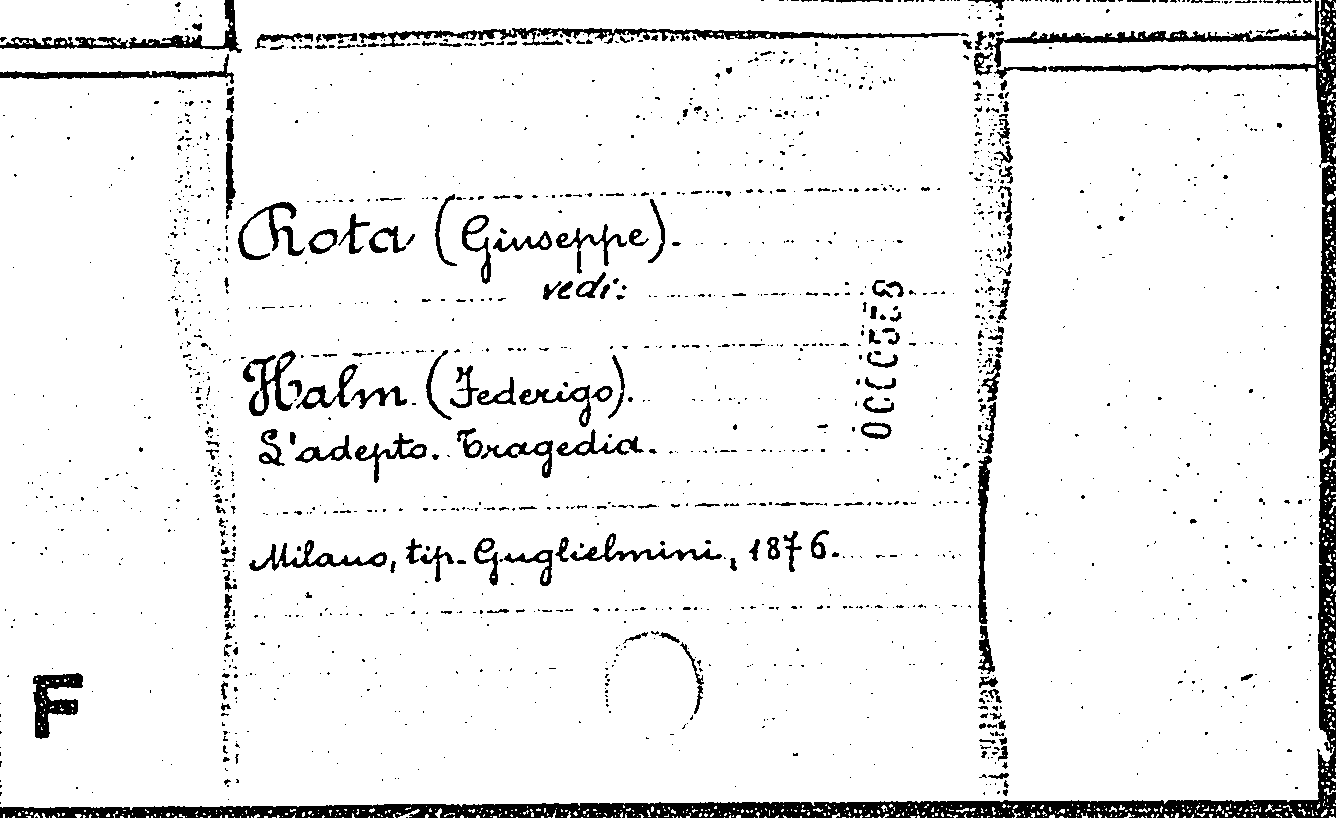 Rota (Giuseppe).
vedi:
Halm (Federigo).
L'adepto. Tragedia.
Milano, tip. Guglielmini, 1876.
F